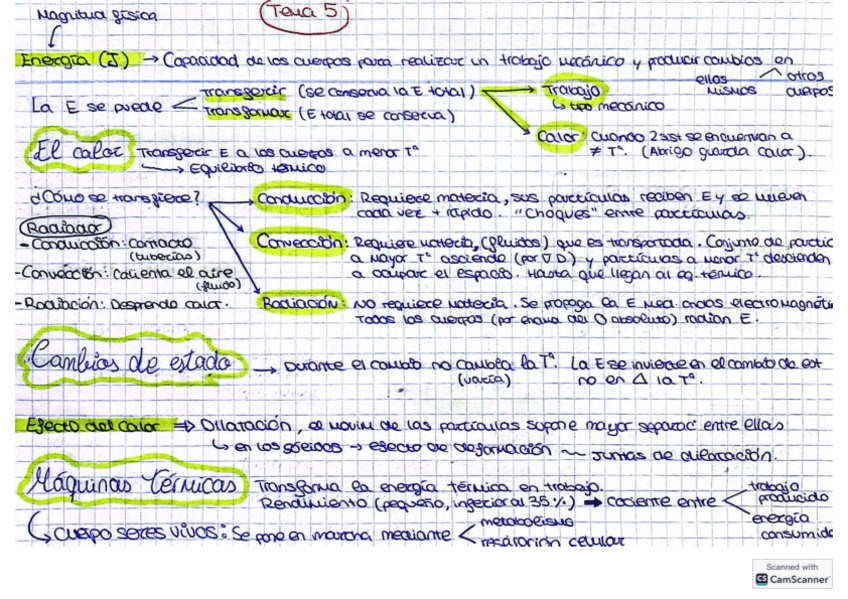 Magnitud física
Tema 5
Energía (J) → Capacidad de los cuerpos para realizar un trabajo mecánico y producir cambios en
ellos mismos
otros cuerpos
La E se puede
Transferir (se conserva la E total)
Transformar (E total se conserva)
Trabajo
↳ tipo mecánico
Calor: Cuando 2 sist se encuentran a
≠ Tª. (Abrigo guarda calor).
El calor Transferir E a los cuerpos a menor Tª
→ Equilibrio térmico
¿Cómo se transfiere?
Conducción: Requiere materia, sus partículas reciben E y se mueven
cada vez + rápido. "Choques" entre partículas.
Radiador
- Conducción: Contacto
(tuberías)
- Convección: Calienta el aire
(fluido)
- Radiación: Desprende calor.
Convección: Requiere materia, (fluidos) que es transportada. Conjunto de partíc
a mayor Tª asciende (por ∇D) y partículas a menor Tª descienden
a ocupar el espacio. Hasta que llegan al eq. térmico.
Radiación: NO requiere materia. Se propaga la E med. ondas electromagnéti
Todos los cuerpos (por encima del 0 absoluto) radian E.
Cambios de estado → Durante el cambio no cambia la Tª. La E se invierte en el cambio de est
(varía)
no en Δ la Tª.
Efecto del calor ⇒ Dilatación, el movim de las partículas supone mayor separac⁰ entre ellas
↳ en los sólidos → efecto de deformación ~ Juntas de dilatación.
Máquinas térmicas Transforma la energía térmica en trabajo.
Rendimiento (pequeño, inferior al 35%) → cociente entre
trabajo producido
energía consumida
↳ Cuerpo seres vivos: Se pone en marcha mediante
metabolismo
respiración celular
Scanned with
CS CamScanner